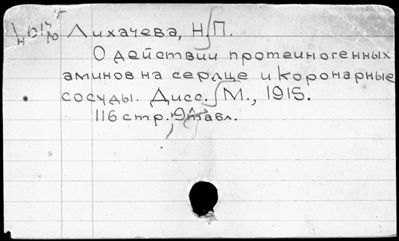 Лихачева, Н.П.
О действии протеиногенных
аминов на сердце и коронарные
сосуды. Дисс. М., 1915.
116 стр., 9 табл.